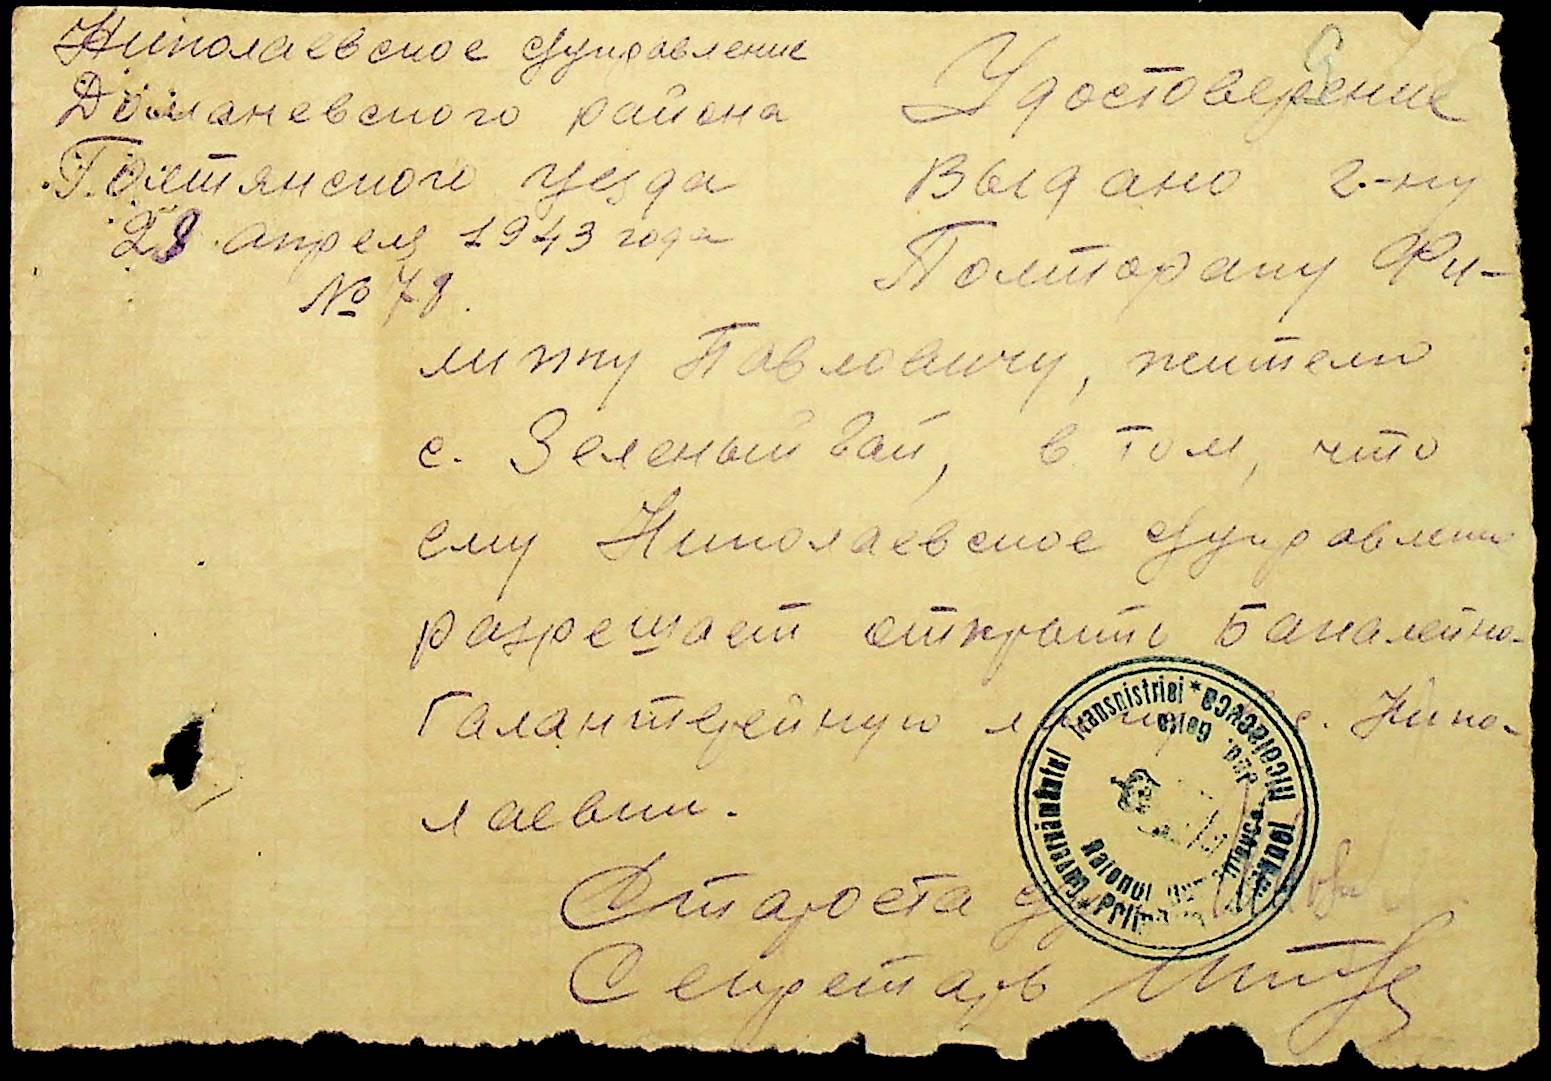 Николаевское с/управление
Доманевского района
Голтянского уезда
28 апреля 1943 года
№ 78.
Удостоверение
Выдано г-ну
Полтораку Фи-
липпу Павловичу, жителю
с. Зеленый Гай, в том, что
ему Николаевское с/управление
разрешает открыть бакалейно-
галантерейную лавку в с. Нико-
лаевки.
Староста с/у
Секретарь
Guvernământul Transnistriei * Primăria Comunei Nicolaevca
Raionul Domaniovca jud. Golta